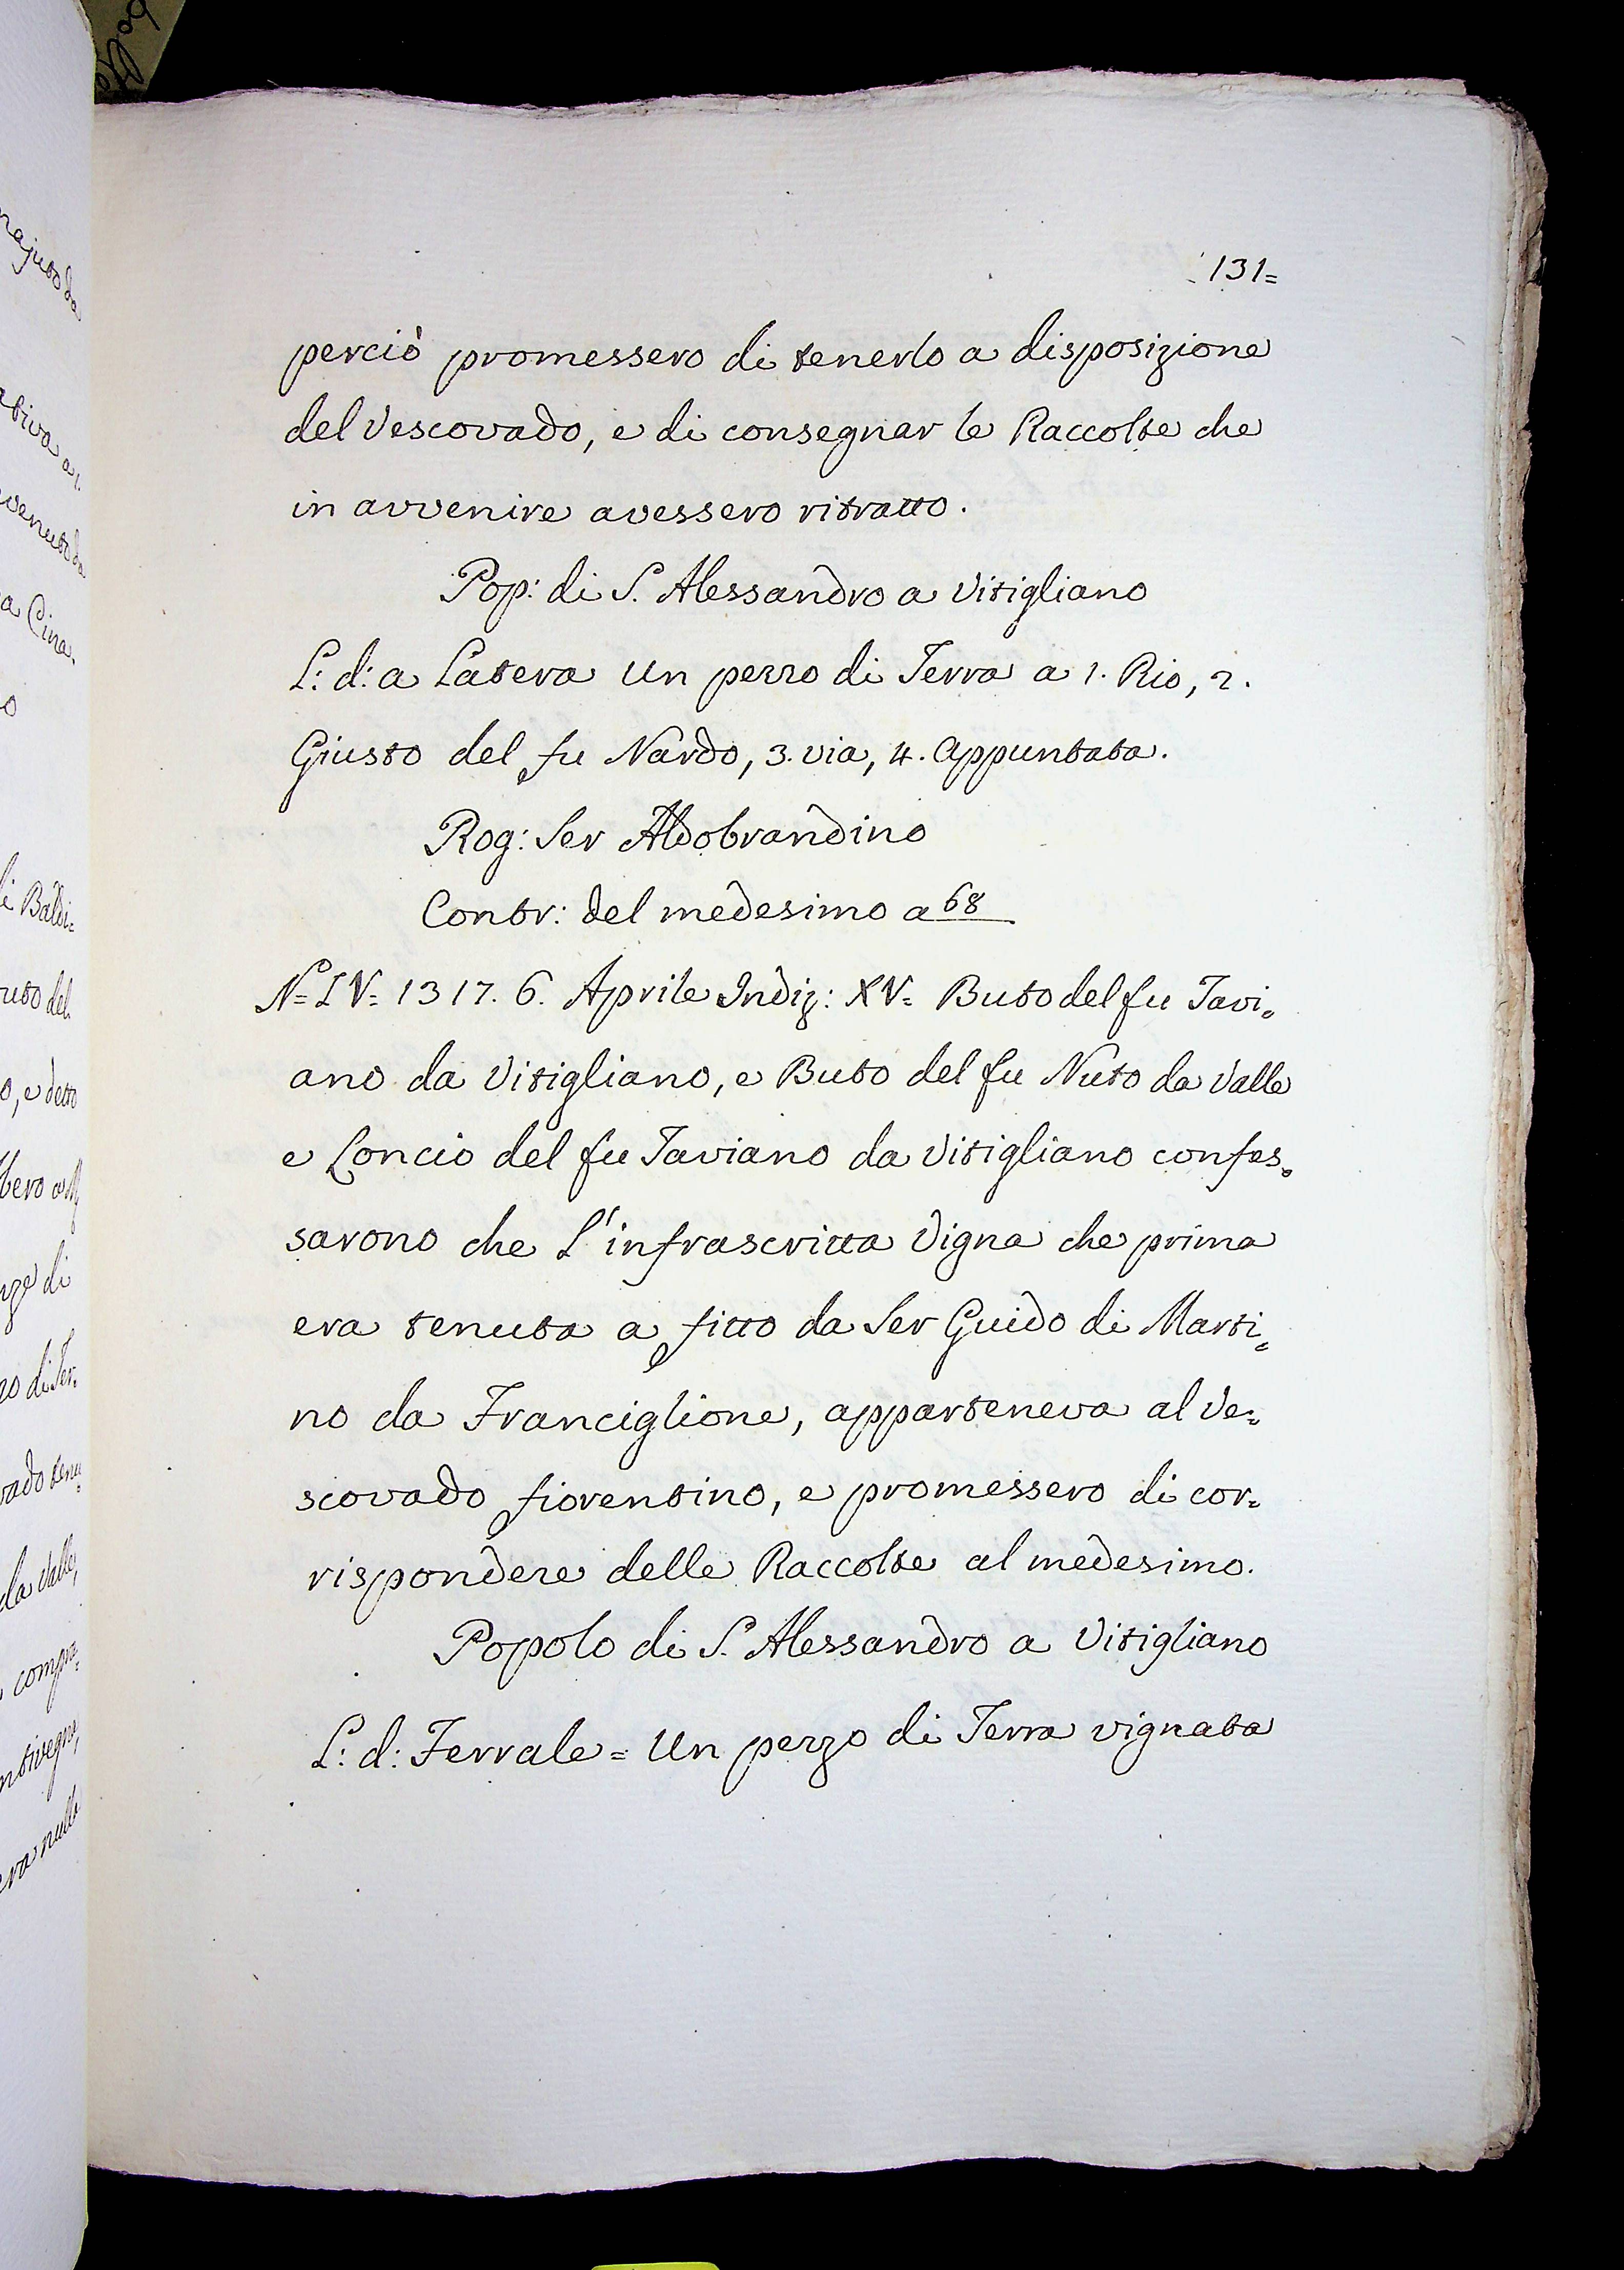 131=
perciò promessero di tenerlo a disposizione
del Vescovado, e di consegnar le Raccolte che
in avvenire avessero ritratto.
Pop: di S. Alessandro a Vitigliano
L: d: a Latera Un pezzo di Terra a 1. Rio, 2.
Giusto del fu Nardo, 3. via, 4. appuntata.
Rog: Ser Aldobrandino
Contr: del medesimo a 68
N=IV= 1317. 6. Aprile Indiz: XV= Buto del fu Tavi=
ano da Vitigliano, e Buto del fu Nuto da Valle
e Loncio del fu Taviano da Vitigliano confes=
sarono che L'infrascritta Vigna che prima
era tenuta a fitto da Ser Guido di Marti=
no da Franciglione, apparteneva al Ve=
scovado fiorentino, e promessero di cor=
rispondere delle Raccolte al medesimo.
Popolo di S. Alessandro a Vitigliano
L: d: Ferrale = Un pezzo di Terra vignata